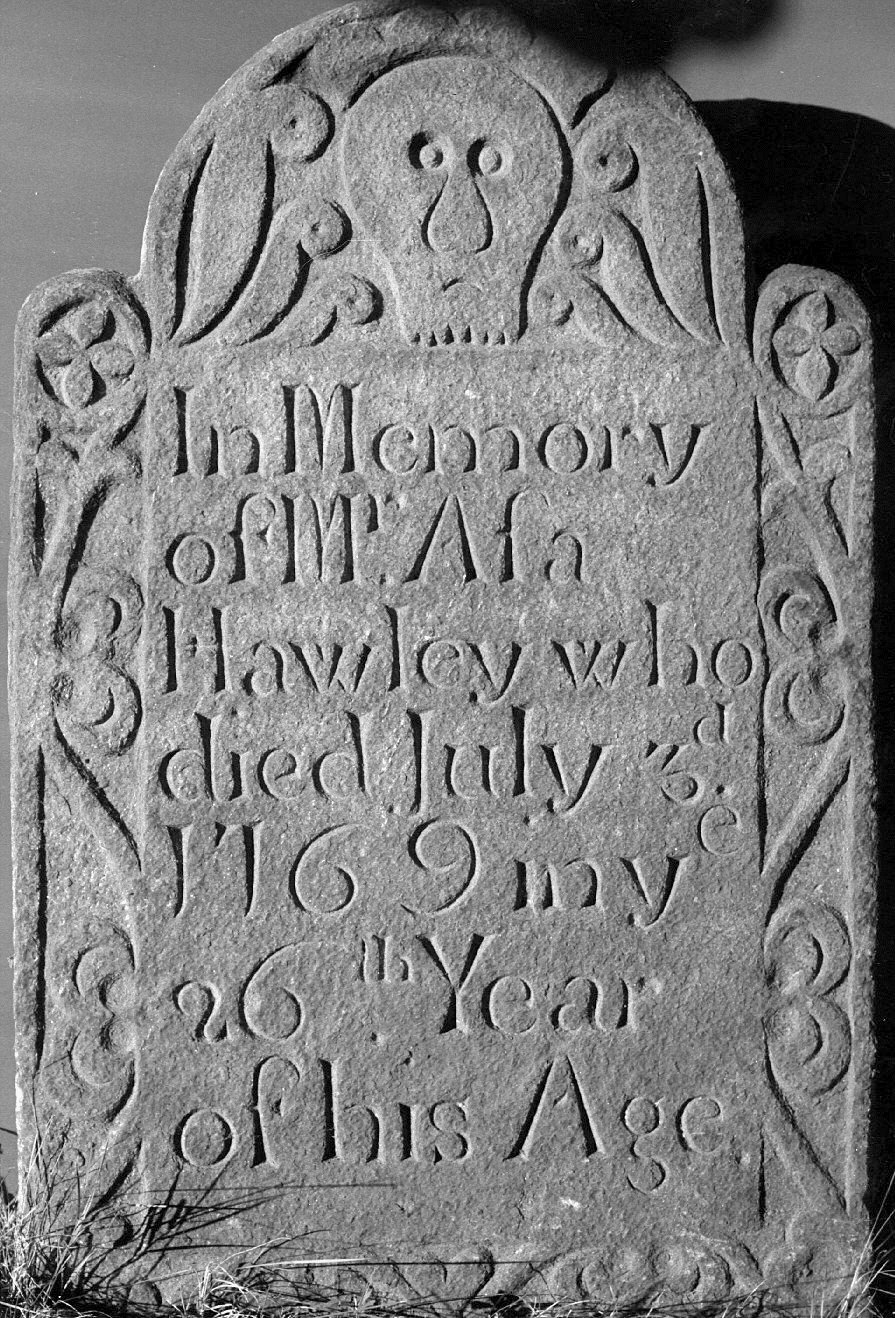 In Memory
of Mr. Aſa
Hawley who
died July 3d.
1769 in ye
26th Year
of his Age